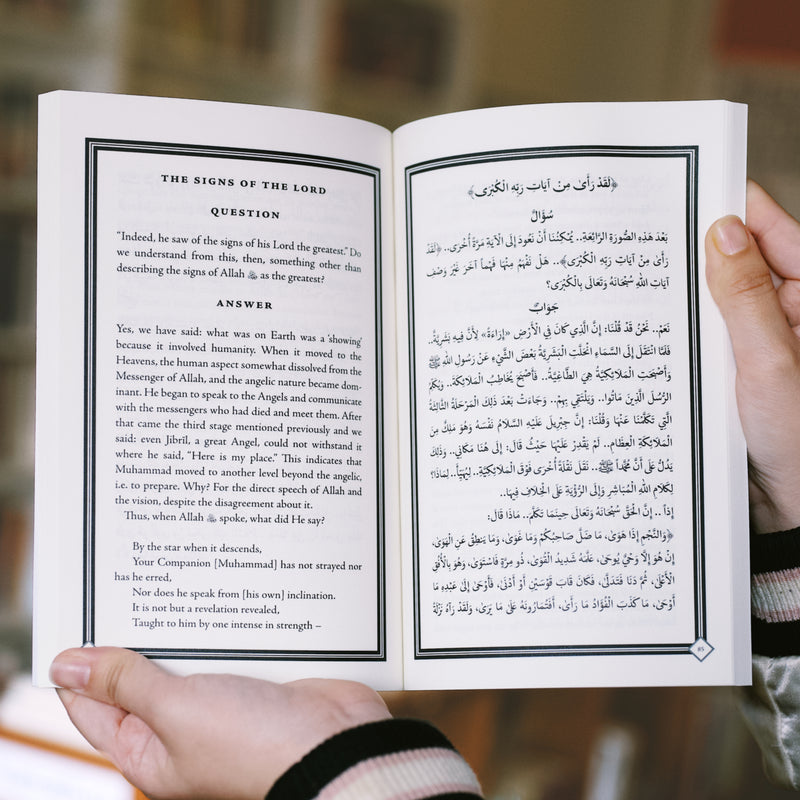 THE SIGNS OF THE LORD
QUESTION
“Indeed, he saw of the signs of his Lord the greatest.” Do
we understand from this, then, something other than
describing the signs of Allah ﷻ as the greatest?
ANSWER
Yes, we have said: what was on Earth was a ‘showing’
because it involved humanity. When it moved to the
Heavens, the human aspect somewhat dissolved from the
Messenger of Allah, and the angelic nature became dom-
inant. He began to speak to the Angels and communicate
with the messengers who had died and meet them. After
that came the third stage mentioned previously and we
said: even Jibrīl, a great Angel, could not withstand it
where he said, “Here is my place.” This indicates that
Muhammad moved to another level beyond the angelic,
i.e. to prepare. Why? For the direct speech of Allah and
the vision, despite the disagreement about it.
Thus, when Allah ﷻ spoke, what did He say?
By the star when it descends,
Your Companion [Muhammad] has not strayed nor
has he erred,
Nor does he speak from [his own] inclination.
It is not but a revelation revealed,
Taught to him by one intense in strength –
﴿لَقَدْ رَأَىٰ مِنْ آيَاتِ رَبِّهِ الْكُبْرَى﴾
سُؤَالٌ
بَعْدَ هَذِهِ الصُّورَةِ الرَّائِعَةِ.. يُمْكِنُنَا أَنْ نَعُودَ إِلَى الْآيَةِ مَرَّةً أُخْرَى.. ﴿لَقَدْ
رَأَى مِنْ آيَاتِ رَبِّهِ الْكُبْرَى﴾.. هَلْ نَفْهَمُ مِنْهَا فَهْماً آخَرَ غَيْرَ وَصْفِ
آيَاتِ اللهِ سُبْحَانَهُ وَتَعَالَى بِالْكُبْرَى؟
جَوَابٌ
نَعَمْ.. نَحْنُ قَدْ قُلْنَا: إِنَّ الَّذِي كَانَ فِي الْأَرْضِ «إِرَاءَةٌ» لِأَنَّ فِيهِ بَشَرِيَّةً..
فَلَمَّا انْتَقَلَ إِلَى السَّمَاءِ انْحَلَّتِ الْبَشَرِيَّةُ بَعْضَ الشَّيْءِ عَنْ رَسُولِ اللهِ ﷺ
وَأَصْبَحَتِ الْمَلَائِكِيَّةُ هِيَ الطَّاغِيَةُ.. فَأَصْبَحَ يُخَاطِبُ الْمَلَائِكَةَ.. وَيُكَلِّمُ
الرُّسُلَ الَّذِينَ مَاتُوا.. وَيَلْتَقِي بِهِمْ.. وَجَاءَتْ بَعْدَ ذَلِكَ الْمَرْحَلَةُ الثَّالِثَةُ
الَّتِي تَكَلَّمْنَا عَنْهَا وَقُلْنَا: إِنَّ جِبْرِيلَ عَلَيْهِ السَّلَامُ نَفْسَهُ وَهُوَ مَلَكٌ مِنَ
الْمَلَائِكَةِ الْعِظَامِ.. لَمْ يَقْدِرْ عَلَيْهَا حَيْثُ قَالَ: إِلَى هُنَا مَكَانِي.. وَذَلِكَ
يَدُلُّ عَلَى أَنَّ مُحَمَّداً ﷺ.. نُقِلَ نَقْلَةً أُخْرَى فَوْقَ الْمَلَائِكِيَّةِ.. لِيُهَيَّأَ.. لِمَاذَا؟
لِكَلَامِ اللهِ الْمُبَاشِرِ وَإِلَى الرُّؤْيَةِ عَلَى الْخِلَافِ فِيهَا..
إِذاً .. إِنَّ الْحَقَّ سُبْحَانَهُ وَتَعَالَى حِينَمَا تَكَلَّمَ.. مَاذَا قَالَ:
﴿وَالنَّجْمِ إِذَا هَوَىٰ، مَا ضَلَّ صَاحِبُكُمْ وَمَا غَوَىٰ، وَمَا يَنطِقُ عَنِ الْهَوَىٰ،
إِنْ هُوَ إِلَّا وَحْيٌ يُوحَىٰ، عَلَّمَهُ شَدِيدُ الْقُوَىٰ، ذُو مِرَّةٍ فَاسْتَوَىٰ، وَهُوَ بِالْأُفُقِ
الْأَعْلَىٰ، ثُمَّ دَنَا فَتَدَلَّىٰ، فَكَانَ قَابَ قَوْسَيْنِ أَوْ أَدْنَىٰ، فَأَوْحَىٰ إِلَىٰ عَبْدِهِ مَا
أَوْحَىٰ، مَا كَذَبَ الْفُؤَادُ مَا رَأَىٰ، أَفَتُمَارُونَهُ عَلَىٰ مَا يَرَىٰ، وَلَقَدْ رَآهُ نَزْلَةً
85